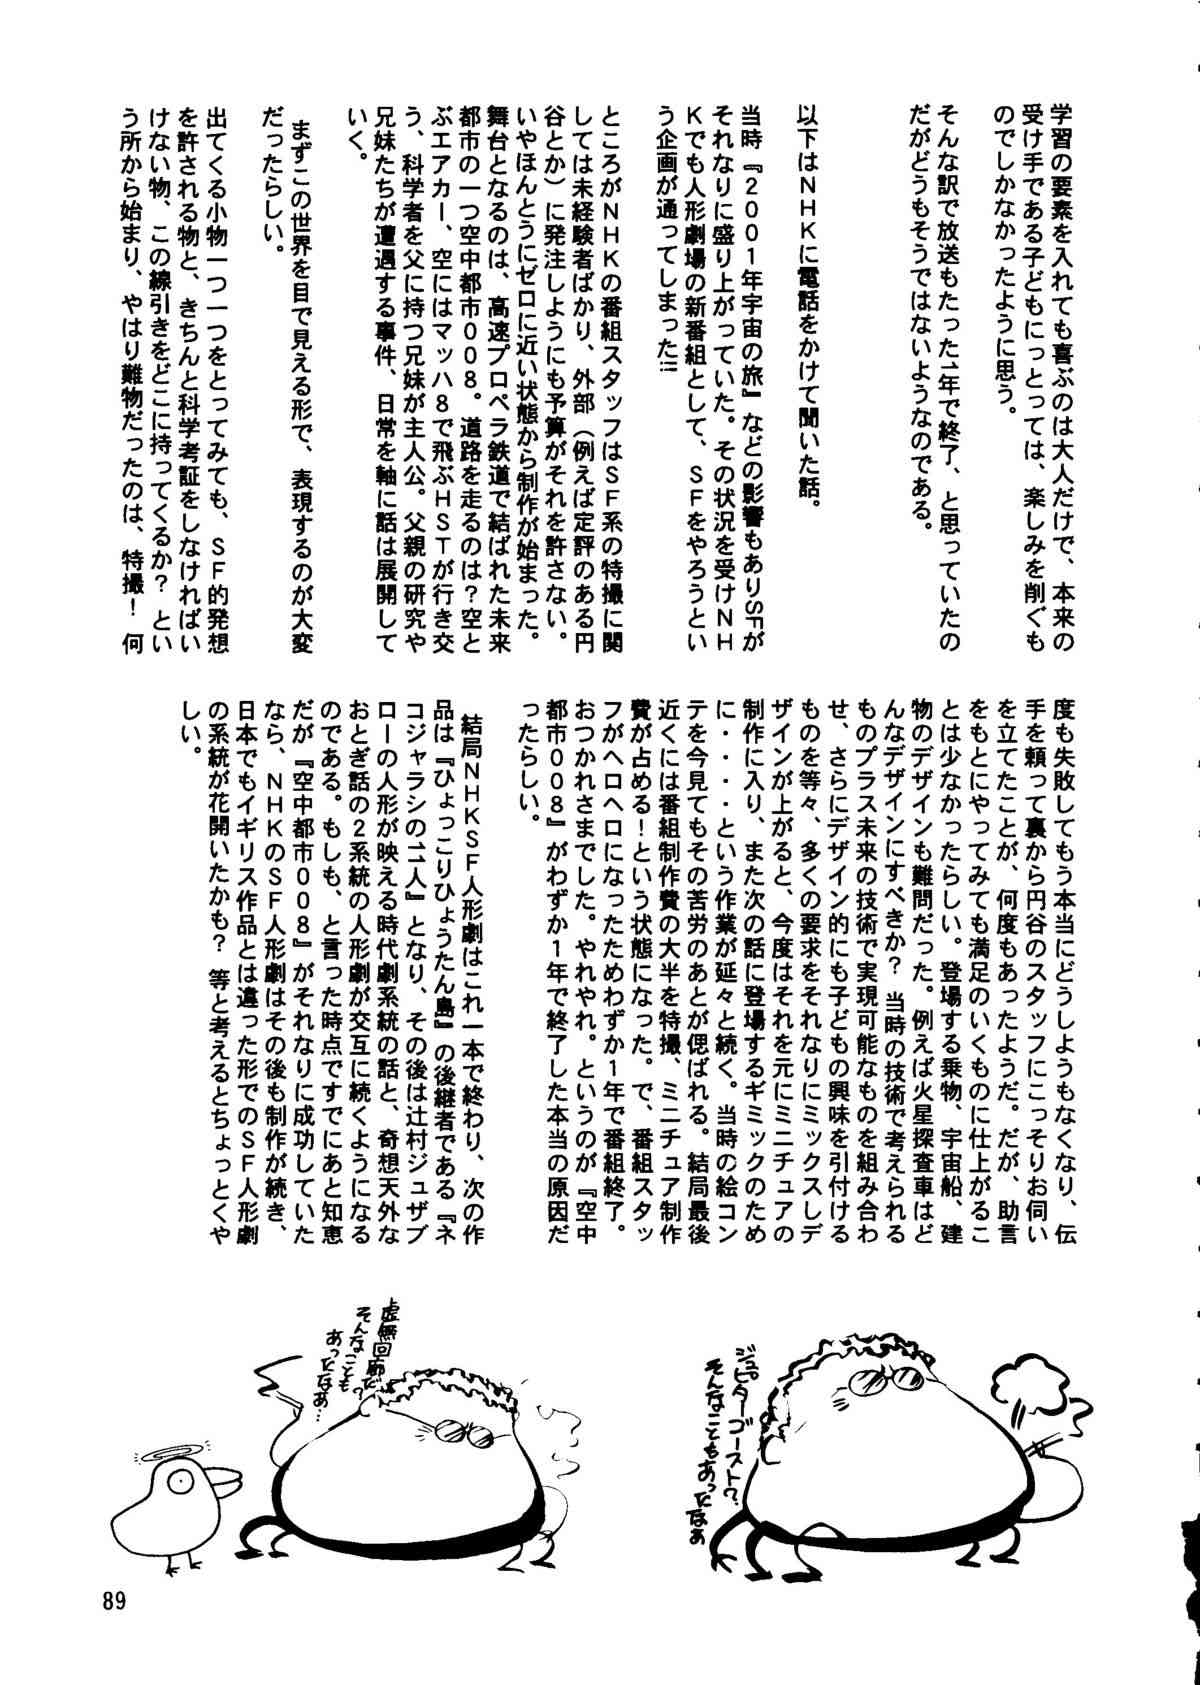 学習の要素を入れても喜ぶのは大人だけで、本来の
受け手である子どもにっとっては、楽しみを削ぐも
のでしかなかったように思う。
そんな訳で放送もたった1年で終了、と思っていたの
だがどうもそうではないようなのである。
以下はNHKに電話をかけて聞いた話。
当時『2001年宇宙の旅』などの影響もありSFが
それなりに盛り上がっていた。その状況を受けNH
Kでも人形劇場の新番組として、SFをやろうとい
う企画が通ってしまった!!
ところがNHKの番組スタッフはSF系の特撮に関
しては未経験者ばかり、外部(例えば定評のある円
谷とか)に発注しようにも予算がそれを許さない。
いやほんとうにゼロに近い状態から制作が始まった。
舞台となるのは、高速プロペラ鉄道で結ばれた未来
都市の一つ空中都市008。道路を走るのは?空と
ぶエアカー、空にはマッハ8で飛ぶHSTが行き交
う、科学者を父に持つ兄妹が主人公。父親の研究や
兄妹たちが遭遇する事件、日常を軸に話は展開して
いく。
まずこの世界を目で見える形で、表現するのが大変
だったらしい。
出てくる小物一つ一つをとってみても、SF的発想
を許される物と、きちんと科学考証をしなければい
けない物、この線引きをどこに持ってくるか?とい
う所から始まり、やはり難物だったのは、特撮!何
度も失敗してもう本当にどうしようもなくなり、伝
手を頼って裏から円谷のスタッフにこっそりお伺い
を立てたことが、何度もあったようだ。だが、助言
をもとにやってみても満足のいくものに仕上がるこ
とは少なかったらしい。登場する乗物、宇宙船、建
物のデザインも難問だった。例えば火星探査車はど
んなデザインにすべきか?当時の技術で考えられる
ものプラス未来の技術で実現可能なものを組み合わ
せ、さらにデザイン的にも子どもの興味を引付ける
ものを等々、多くの要求をそれなりにミックスしデ
ザインが上がると、今度はそれを元にミニチュアの
制作に入り、また次の話に登場するギミックのため
に・・・・という作業が延々と続く。当時の絵コン
テを今見てもその苦労のあとが偲ばれる。結局最後
近くには番組制作費の大半を特撮、ミニチュア制作
費が占める!という状態になった。で、番組スタッ
フがヘロヘロになったためわずか1年で番組終了。
おつかれさまでした。やれやれ。というのが『空中
都市008』がわずか1年で終了した本当の原因だ
ったらしい。
結局NHKSF人形劇はこれ一本で終わり、次の作
品は『ひょっこりひょうたん島』の後継者である『ネ
コジャラシの11人』となり、その後は辻村ジュザブ
ローの人形が映える時代劇系統の話と、奇想天外な
おとぎ話の2系統の人形劇が交互に続くようになる
のである。もしも、と言った時点ですでにあと知恵
だが『空中都市008』がそれなりに成功していた
なら、NHKのSF人形劇はその後も制作が続き、
日本でもイギリス作品とは違った形でのSF人形劇
の系統が花開いたかも?等と考えるとちょっとくや
しい。
ジュピターゴースト?
そんなこともあったなぁ
虚無回廊だ?
そんなことも
あったなぁ…
89